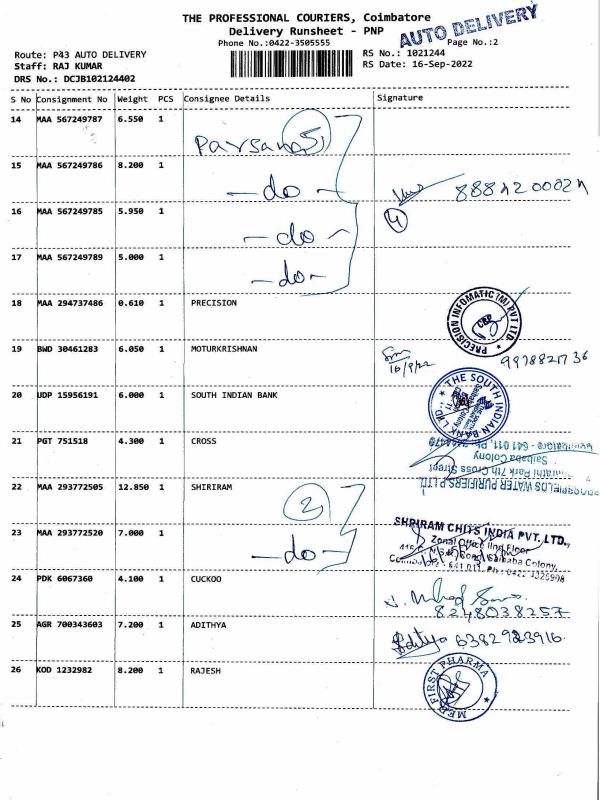 THE PROFESSIONAL COURIERS, Coimbatore
Delivery Runsheet - PNP
AUTO DELIVERY
Phone No.:0422-3505555
Page No.:2
Route: P43 AUTO DELIVERY
RS No.: 1021244
Staff: RAJ KUMAR
RS Date: 16-Sep-2022
DRS No.: DCJB102124402
S No Consignment No Weight PCS Consignee Details Signature
14 MAA 567249787 6.550 1
15 MAA 567249786 8.200 1 -do-
16 MAA 567249785 5.950 1 -do- 4
17 MAA 567249789 5.000 1 -do-
18 MAA 294737486 0.610 1 PRECISION
PRECISION INFOMATIC (M) PVT LTD
19 BWD 30461283 6.050 1 MOTURKRISHNAN
16/9/22
20 UDP 15956191 6.000 1 SOUTH INDIAN BANK
THE SOUTH INDIAN BANK LTD
21 PGT 751518 4.300 1 CROSS
WATER PURIFIERS P LTD
Park 7th Cross Street
Saibaba Colony
641 011
22 MAA 293772505 12.850 1 SHRIRAM
2
23 MAA 293772520 7.000 1 -do-
SHRIRAM CHITS INDIA PVT. LTD.,
Zonal Office IInd Floor
Saibaba Colony,
24 PDK 6067360 4.100 1 CUCKOO
8248038257
25 AGR 700343603 7.200 1 ADITHYA
Aditya 6382923916
26 KOD 1232982 8.200 1 RAJESH
MED FIRST PHARMA